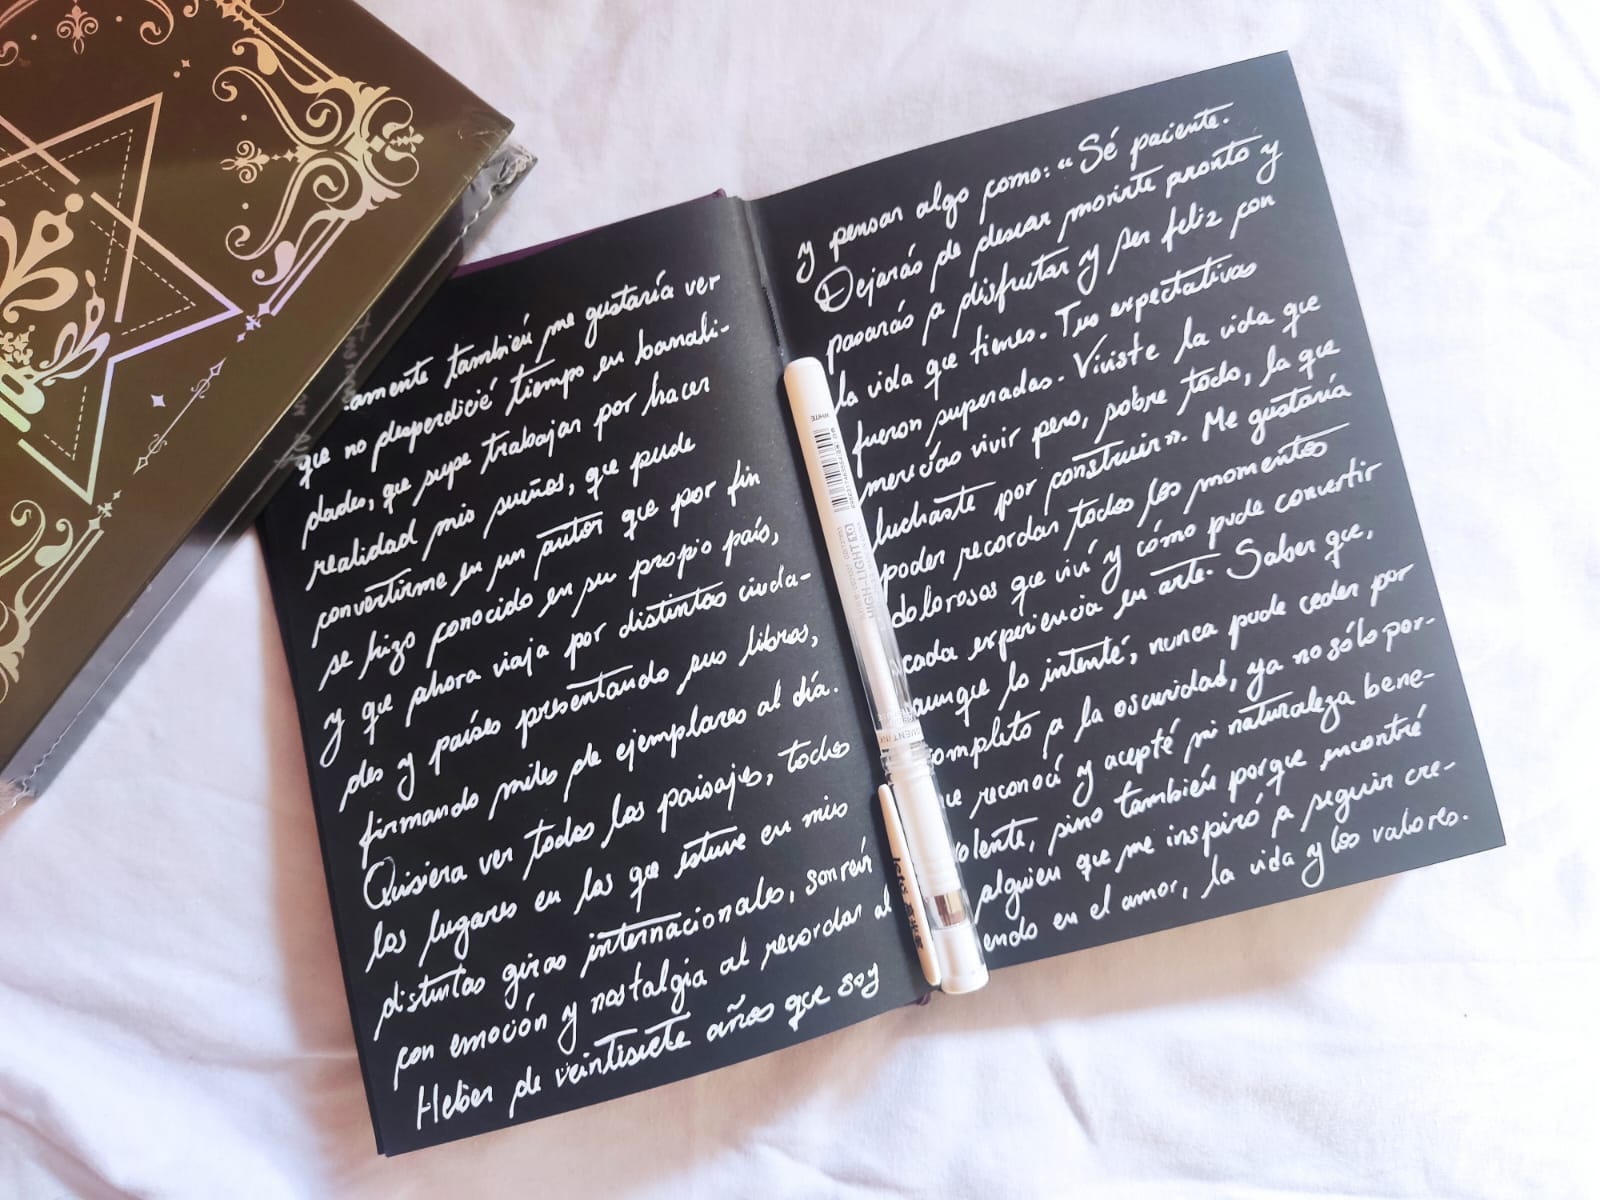 amente también me gustaría ver
que no desperdicié tiempo en banali-
dades, que supe trabajar por hacer
realidad mis sueños, que pude
convertirme en un autor que por fin
se hizo conocido en su propio país,
y que ahora viaja por distintas ciuda-
des y países presentando sus libros,
firmando miles de ejemplares al día.
Quisiera ver todos los paisajes, todos
los lugares en los que estuve en mis
distintas giras internacionales, sonreír
con emoción y nostalgia al recordar al
Heber de veintisiete años que soy
y pensar algo como: "Sé paciente.
Dejarás de desear morirte pronto y
pasarás a disfrutar y ser feliz con
la vida que tienes. Tus expectativas
fueron superadas. Viviste la vida que
merecías vivir pero, sobre todo, la que
luchaste por construir". Me gustaría
poder recordar todos los momentos
dolorosos que viví y cómo pude convertir
cada experiencia en arte. Saber que,
aunque lo intenté, nunca pude ceder por
completo a la oscuridad, ya no sólo por-
que reconocí y acepté mi naturaleza bene-
volente, sino también porque encontré
alguien que me inspiró a seguir cre-
endo en el amor, la vida y los valores.
WHITE
HIGH-LIGHT